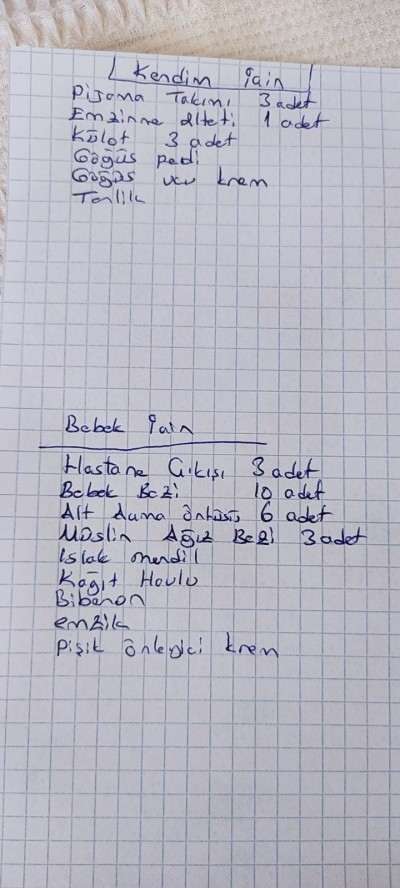 Kendim İçin
Pijama Takımı 3 adet
Emzirme atleti 1 adet
Külot 3 adet
Göğüs pedi
Göğüs ucu krem
Terlik
Bebek İçin
Hastane Çıkışı 3 adet
Bebek Bezi 10 adet
Alt Açma Örtüsü 6 adet
Müslin Ağız Bezi 3 adet
Islak mendil
Kağıt Havlu
Biberon
emzik
Pişik önleyici krem